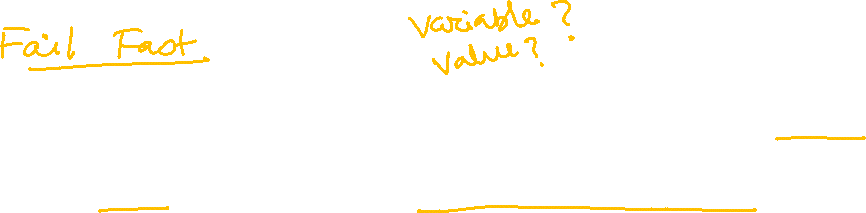 Fail Fast.
variable?
value?